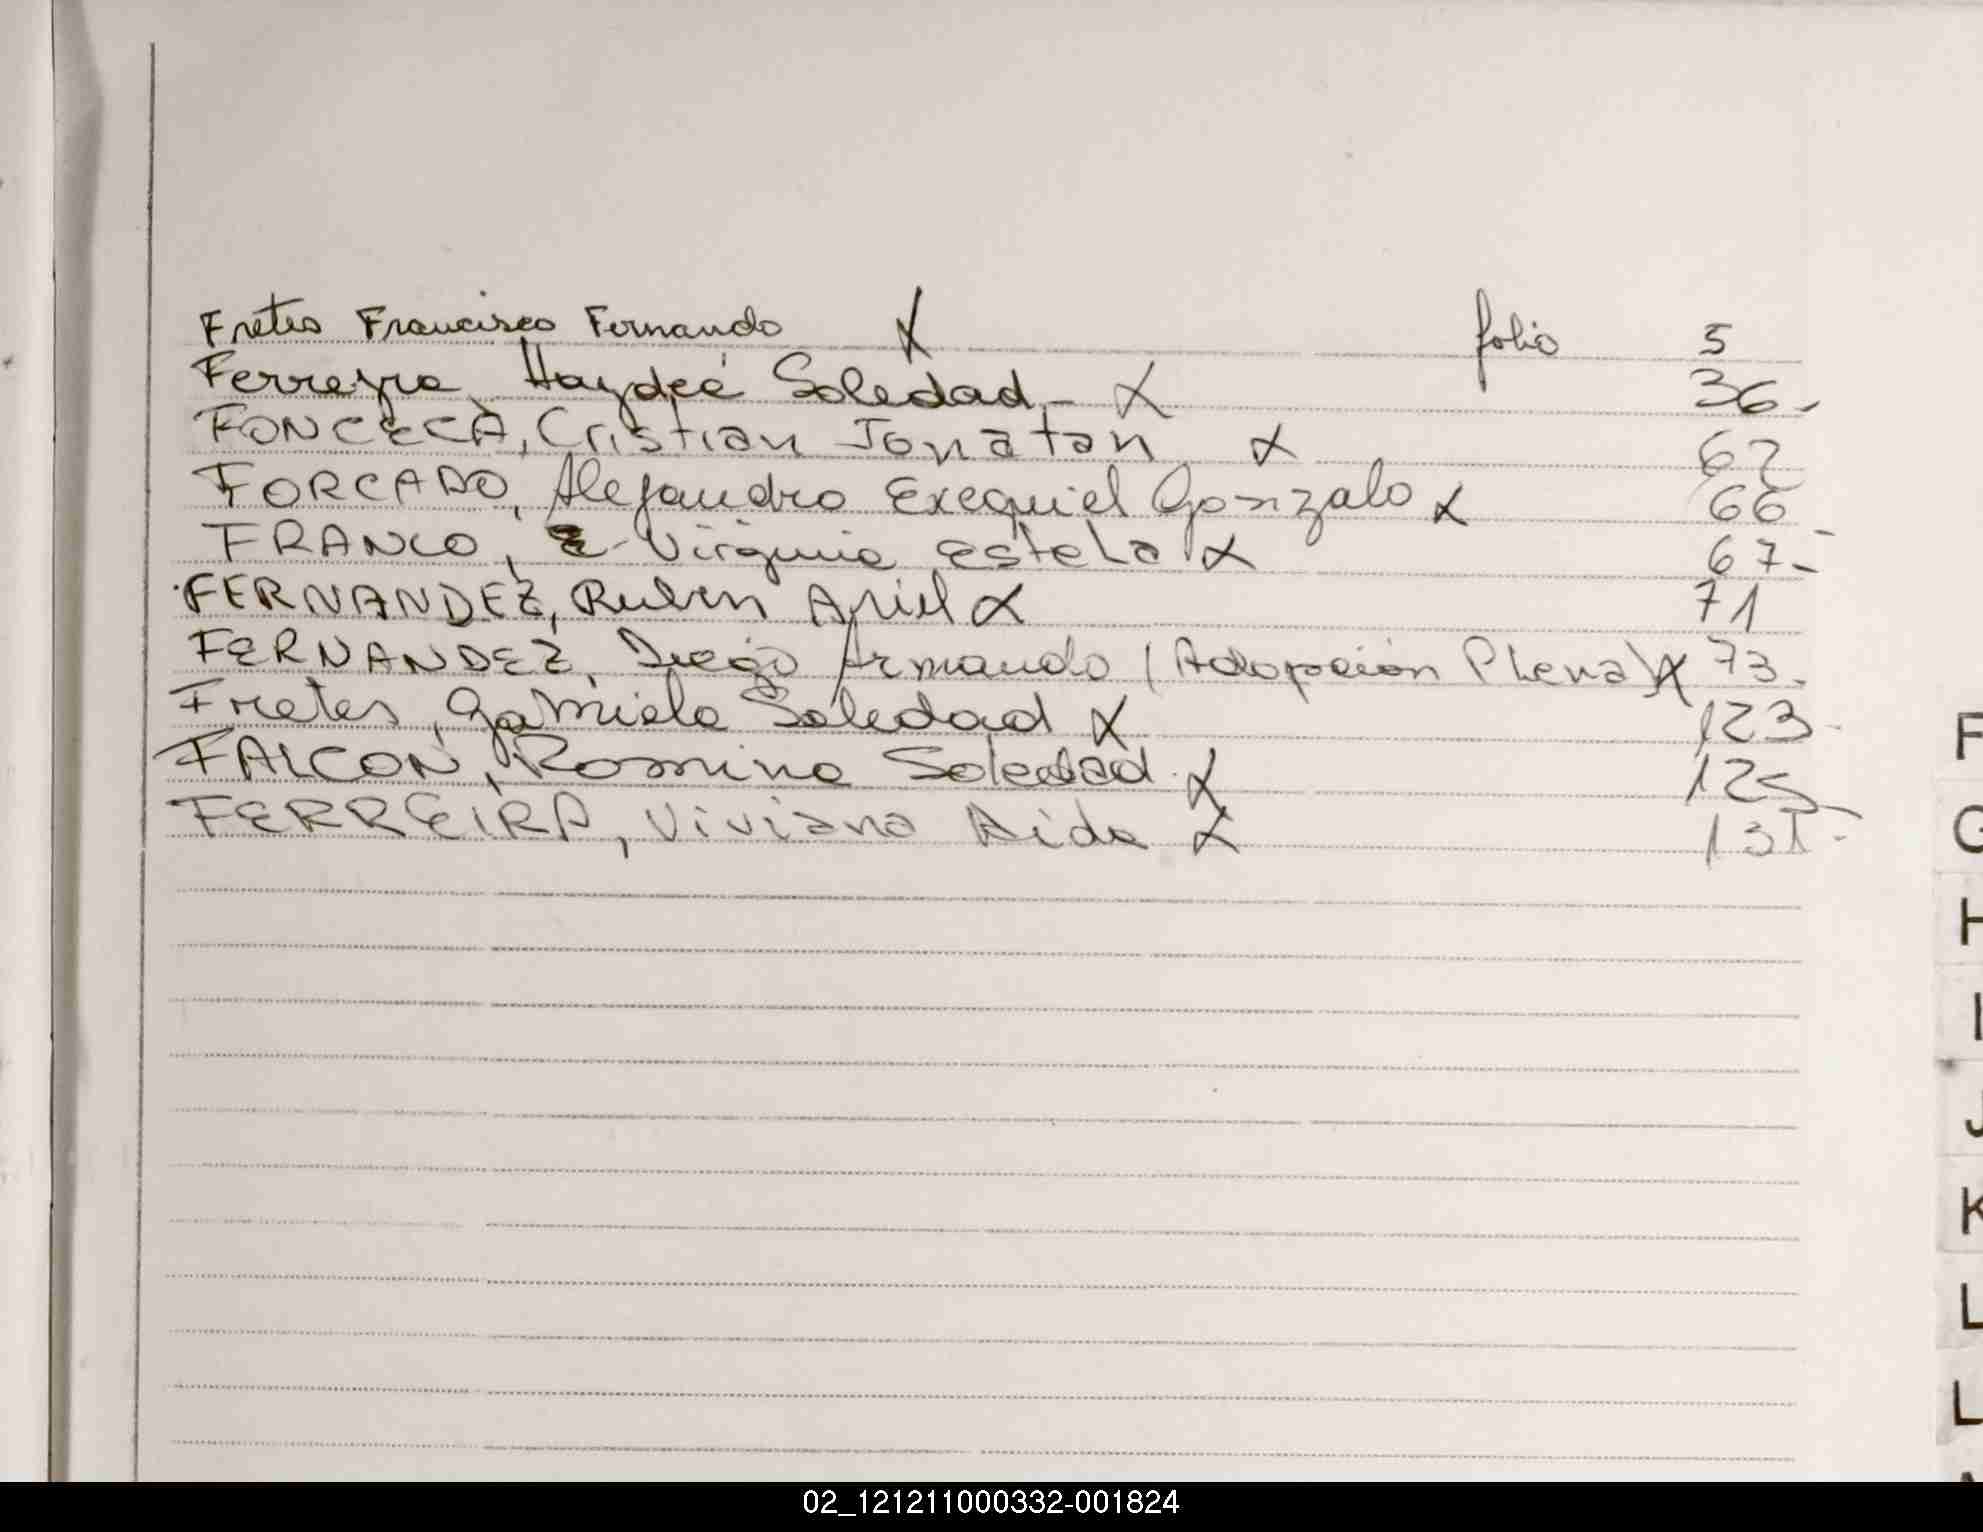 Fretes Francisco Fernando X folio 5
Ferreyra Haydeé Soledad - X 36-
FONCECA, Cristian Jonatan X 62
FORCADO, Alejandro Exequiel Gonzalo X 66
FRANCO, Virginia Estela X 67-
FERNANDEZ, Ruben Ariel X 71
FERNANDEZ, Diego Armando (Adopción Plena) X 73-
Fretes, Gabriela Soledad X 123-
FALCON, Romina Soledad X 125-
FERREIRA, Viviana Aida X 131-
F
G
H
I
J
K
L
L
02_121211000332-001824